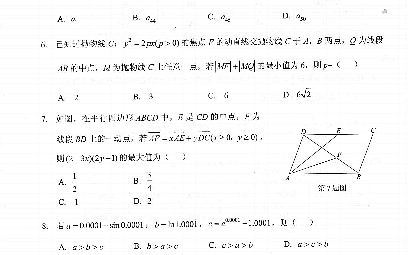 A. a B. a₄₄ C. a₄₅ D. a₅₀
6. 已知过抛物线 C: y²=2px(p>0)的焦点 F 的动直线交抛物线 C 于 A、B 两点, Q 为线段
AB 的中点, M 为抛物线 C 上任意一点, 若|MF|+|MQ|的最小值为 6, 则 p=( )
A. 2 B. 3 C. 6 D. 6√2
7. 如图, 在平行四边形 ABCD 中, E 是 CD 的中点, F 为
线段 BD 上的一动点, 若 AF=xAE+yDC(x>0, y≥0),
则 (2-3x)(2y+1) 的最大值为( )
A. 1/2 B. 3/4
C. 1 D. 2
D E C
F
A B
第 7 题图
8. 若 a=0.0001+sin0.0001, b=ln1.0001, c=e^0.0001-1.0001, 则( )
A. a>b>c B. b>a>c C. c>a>b D. a>c>b